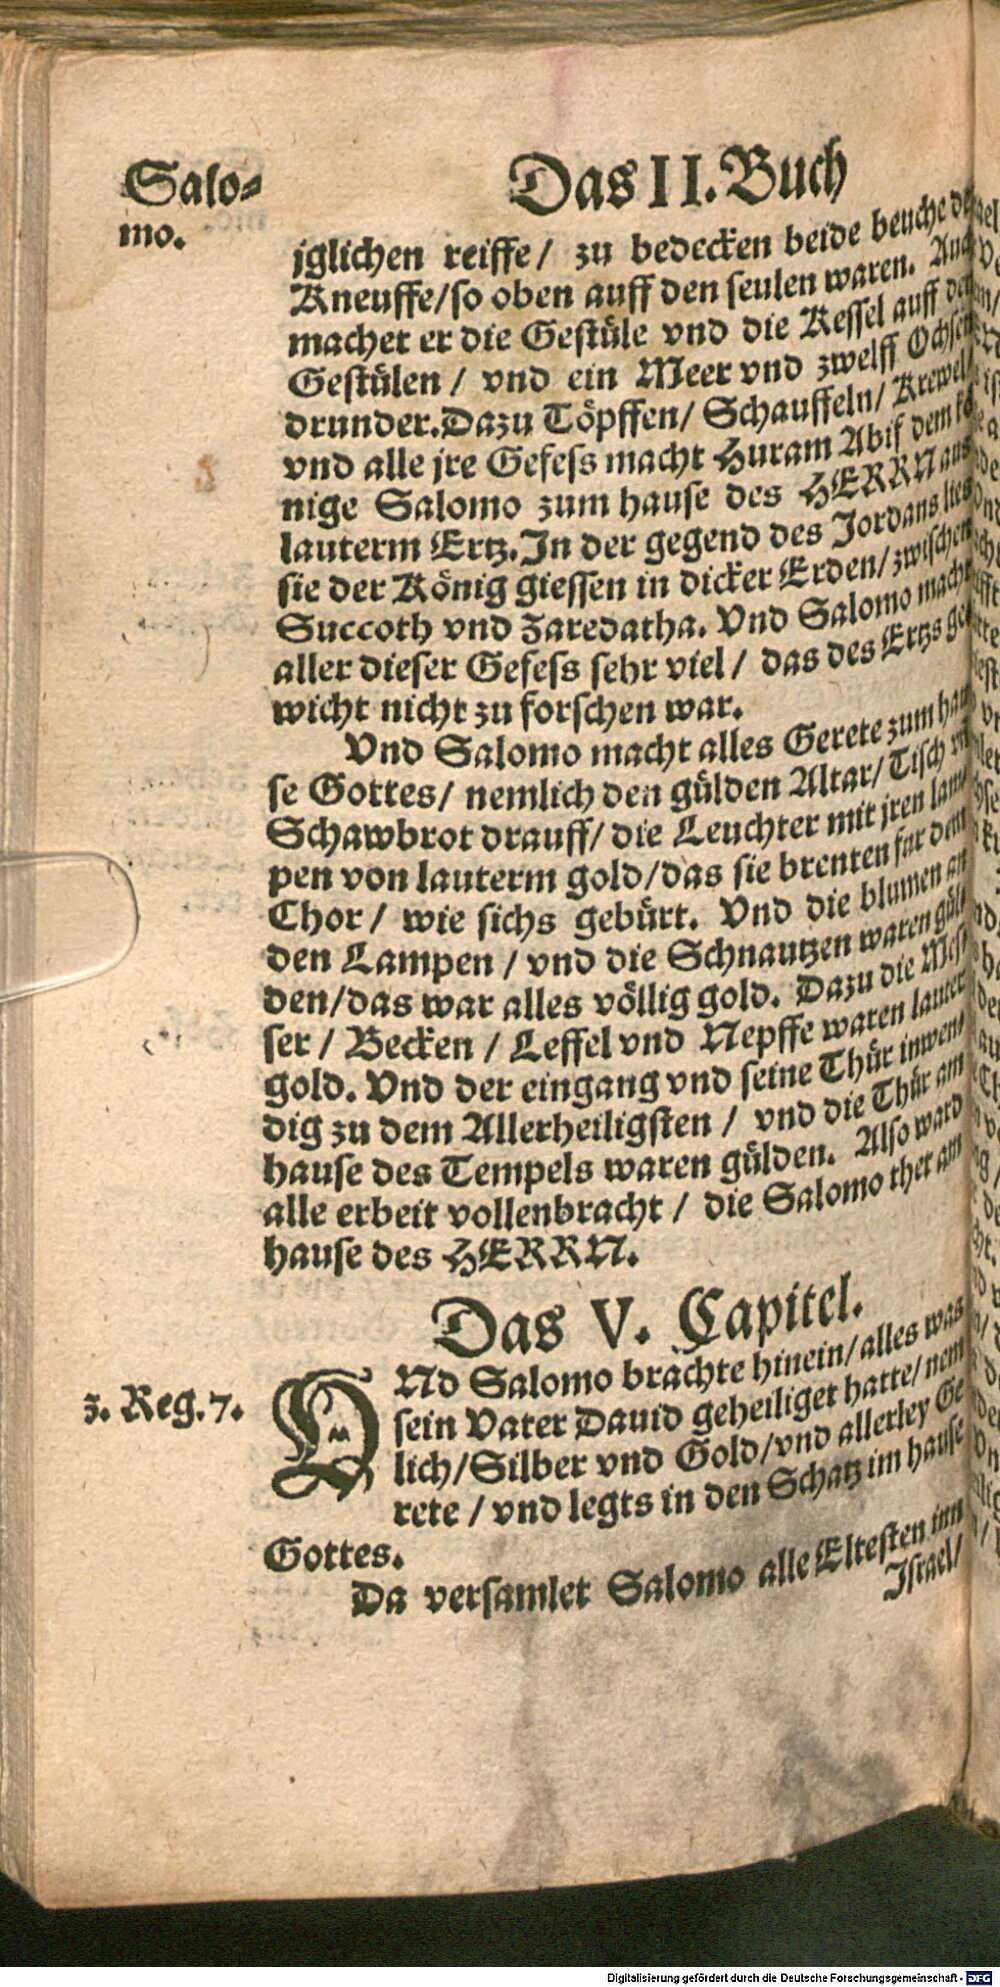 Salo-
mo.
Das II. Buch
jglichen reiffe / zu bedecken beide beuche der
Kneuffe / so oben auff den seulen waren. Auch
machet er die Gestüle vnd die Kessel auff den
Gestülen / vnd ein Meer vnd zwelff Ochsen
drunder. Dazu Töpffen / Schauffeln / Krewel /
vnd alle jre Gefess macht Huram Abif dem kö
nige Salomo zum hause des HERRN aus
lauterm Ertz. In der gegend des Jordans lies
sie der König giessen in dicker Erden / zwischen
Succoth vnd Zaredatha. Vnd Salomo macht
aller dieser Gefess sehr viel / das des Ertzs ge
wicht nicht zu forschen war.
Vnd Salomo macht alles Gerete zum hau
se Gottes / nemlich den gülden Altar / Tisch
Schawbrot drauff / die Leuchter mit jren lam
pen von lauterm gold / das sie brenten fur dem
Chor / wie sichs gebürt. Vnd die blumen an
den Lampen / vnd die Schnautzen waren gül
den / das war alles völlig gold. Dazu die Mes
ser / Becken / Leffel vnd Nepffe waren lauter
gold. Vnd der eingang vnd seine Thür inwen
dig zu dem Allerheiligsten / vnd die Thür am
hause des Tempels waren gülden. Also ward
alle erbeit vollenbracht / die Salomo thet am
hause des HERRN.
Das V. Capitel.
3. Reg. 7.
VNd Salomo brachte hinein / alles was
sein Vater Dauid geheiliget hatte / nem
lich / Silber vnd Gold / vnd allerley Ge
rete / vnd legts in den Schatz im hause
Gottes.
Da versamlet Salomo alle Eltesten inn
Israel /
Digitalisierung gefördert durch die Deutsche Forschungsgemeinschaft - DFG